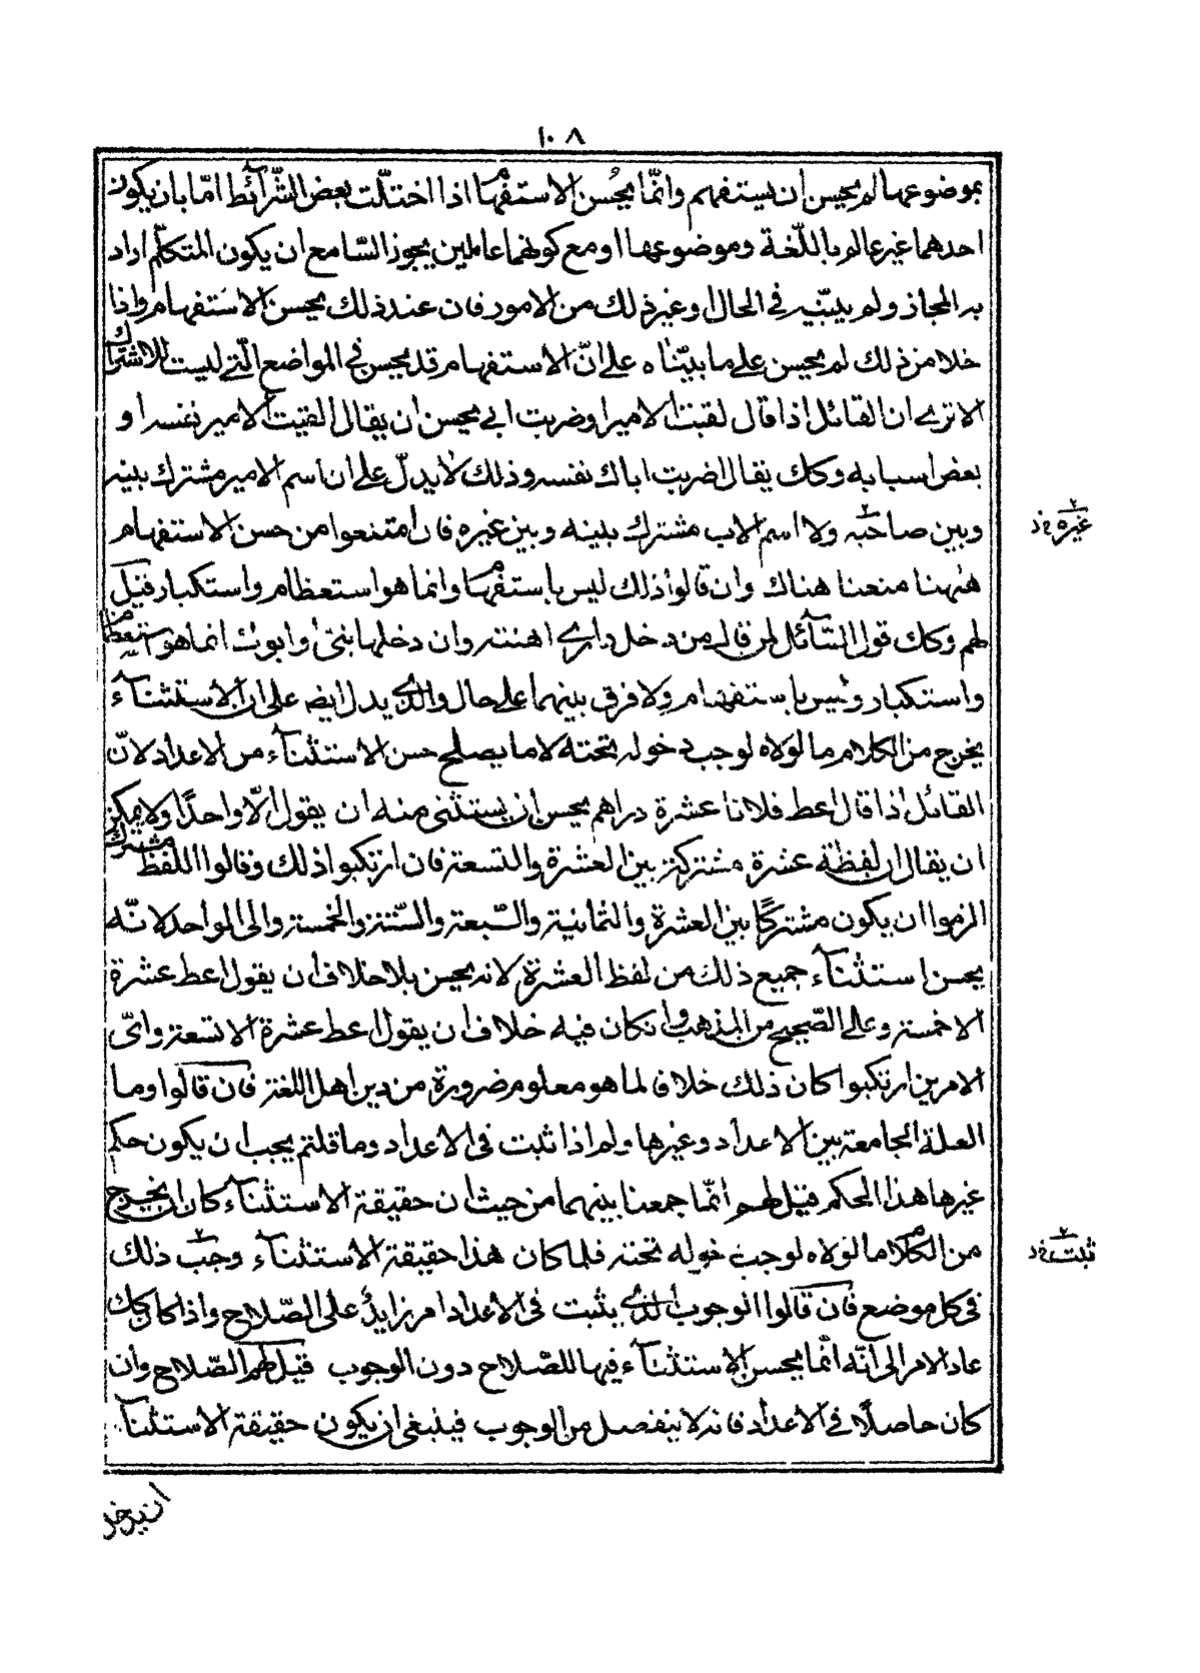 ١٠٨
بموضوعها لم يحسن ان يستفهم وانّما يحُسن الاستفهام اذا اختلّت بعض الشّرآئط امّا بان يكون
احدهما غير عالم باللّغة وموضوعها او مع كونهما عالمين يجوز السّامع ان يكون المتكلّم اراد
به المجاز ولم يبيّنه في الحال او غير ذلك من الامور فان عند ذلك يحسن الاستفهام واذا
خلا من ذلك لم يحسن على ما بيّنّاه على انّ الاستفهام قد يحسن في المواضع الّتي ليست للاشتراك
الا ترى ان القائل اذا قال لقيت الامير او ضربت ابي يحسن ان يقال القيت الامير نفسه او
بعض اسبابه وكك يقال اضربت اباك نفسه وذلك لا يدلّ على ان اسم الامير مشترك بينه
وبين صاحبه ولا اسم الاب مشترك بينه وبين غيره فان امتنعوا من حسن الاستفهام
هٰهنا منعنا هناك وان قالوا ذلك ليس باستفهام وانما هو استعظام واستكبار قيل
لهم وكك قول السّآئل لمن قال من دخل داري اهنته وان دخلها بنيّ وابوك انما هو استعظام
واستكبار وليس باستفهام ولا فرق بينهما على حال والذي يدل ايضه على ان الاستثنآء
يخرج من الكلام ما لولاه لوجب دخوله تحته لا ما يصلح حسن الاستثنآء من الاعداد لانّ
القائل اذا قال اعط فلانا عشرة دراهم يحسن ان يستثنى منه ان يقول الّا واحدًا ولا يمكن
ان يقال ان لفظة عشرة مشتركة بين العشرة والتسعة فان ارتكبوا ذلك وقالوا اللفظ مشترك
الزموا ان يكون مشتركًا بين العشرة والثمانية والسّبعة والسّتة والخمسة والى الواحد لانّه
يحسن استثنآء جميع ذلك من لفظ العشرة لانه يحسن بلا خلاف ان يقول اعط عشرة
الا خمسة وعلى الصّحيح من المذهب وان كان فيه خلاف ان يقول اعط عشرة الا تسعة وايّ
الامرين ارتكبوا كان ذلك خلاف لما هو معلوم ضرورة من دين اهل اللغة فان قالوا وما
العلة الجامعة بين الاعداد وغيرها ولم اذا ثبت في الاعداد وما قلتم يجب ان يكون حكم
غيرها هذا الحكم قيل لهم انّما جمعنا بينهما من حيث ان حقيقة الاستثنآء كان ان يخرج
من الكلام ما لولاه لوجب دخوله تحته فلما كان هذا حقيقة الاستثنآء وجب ذلك
في كل موضع فان قالوا الوجوب الذي يثبت في الاعداد امر زايد على الصّلاح واذا كان كك
عاد الامر الى انّه انّما يحسن الاستثنآء فيها للصّلاح دون الوجوب قيل لهم الصّلاح وان
كان حاصلًا في الاعداد فانه لا ينفصل من الوجوب فينبغي ان يكون حقيقة الاستثنآء
ان يخرج
غيره خ د
ثبت خ د